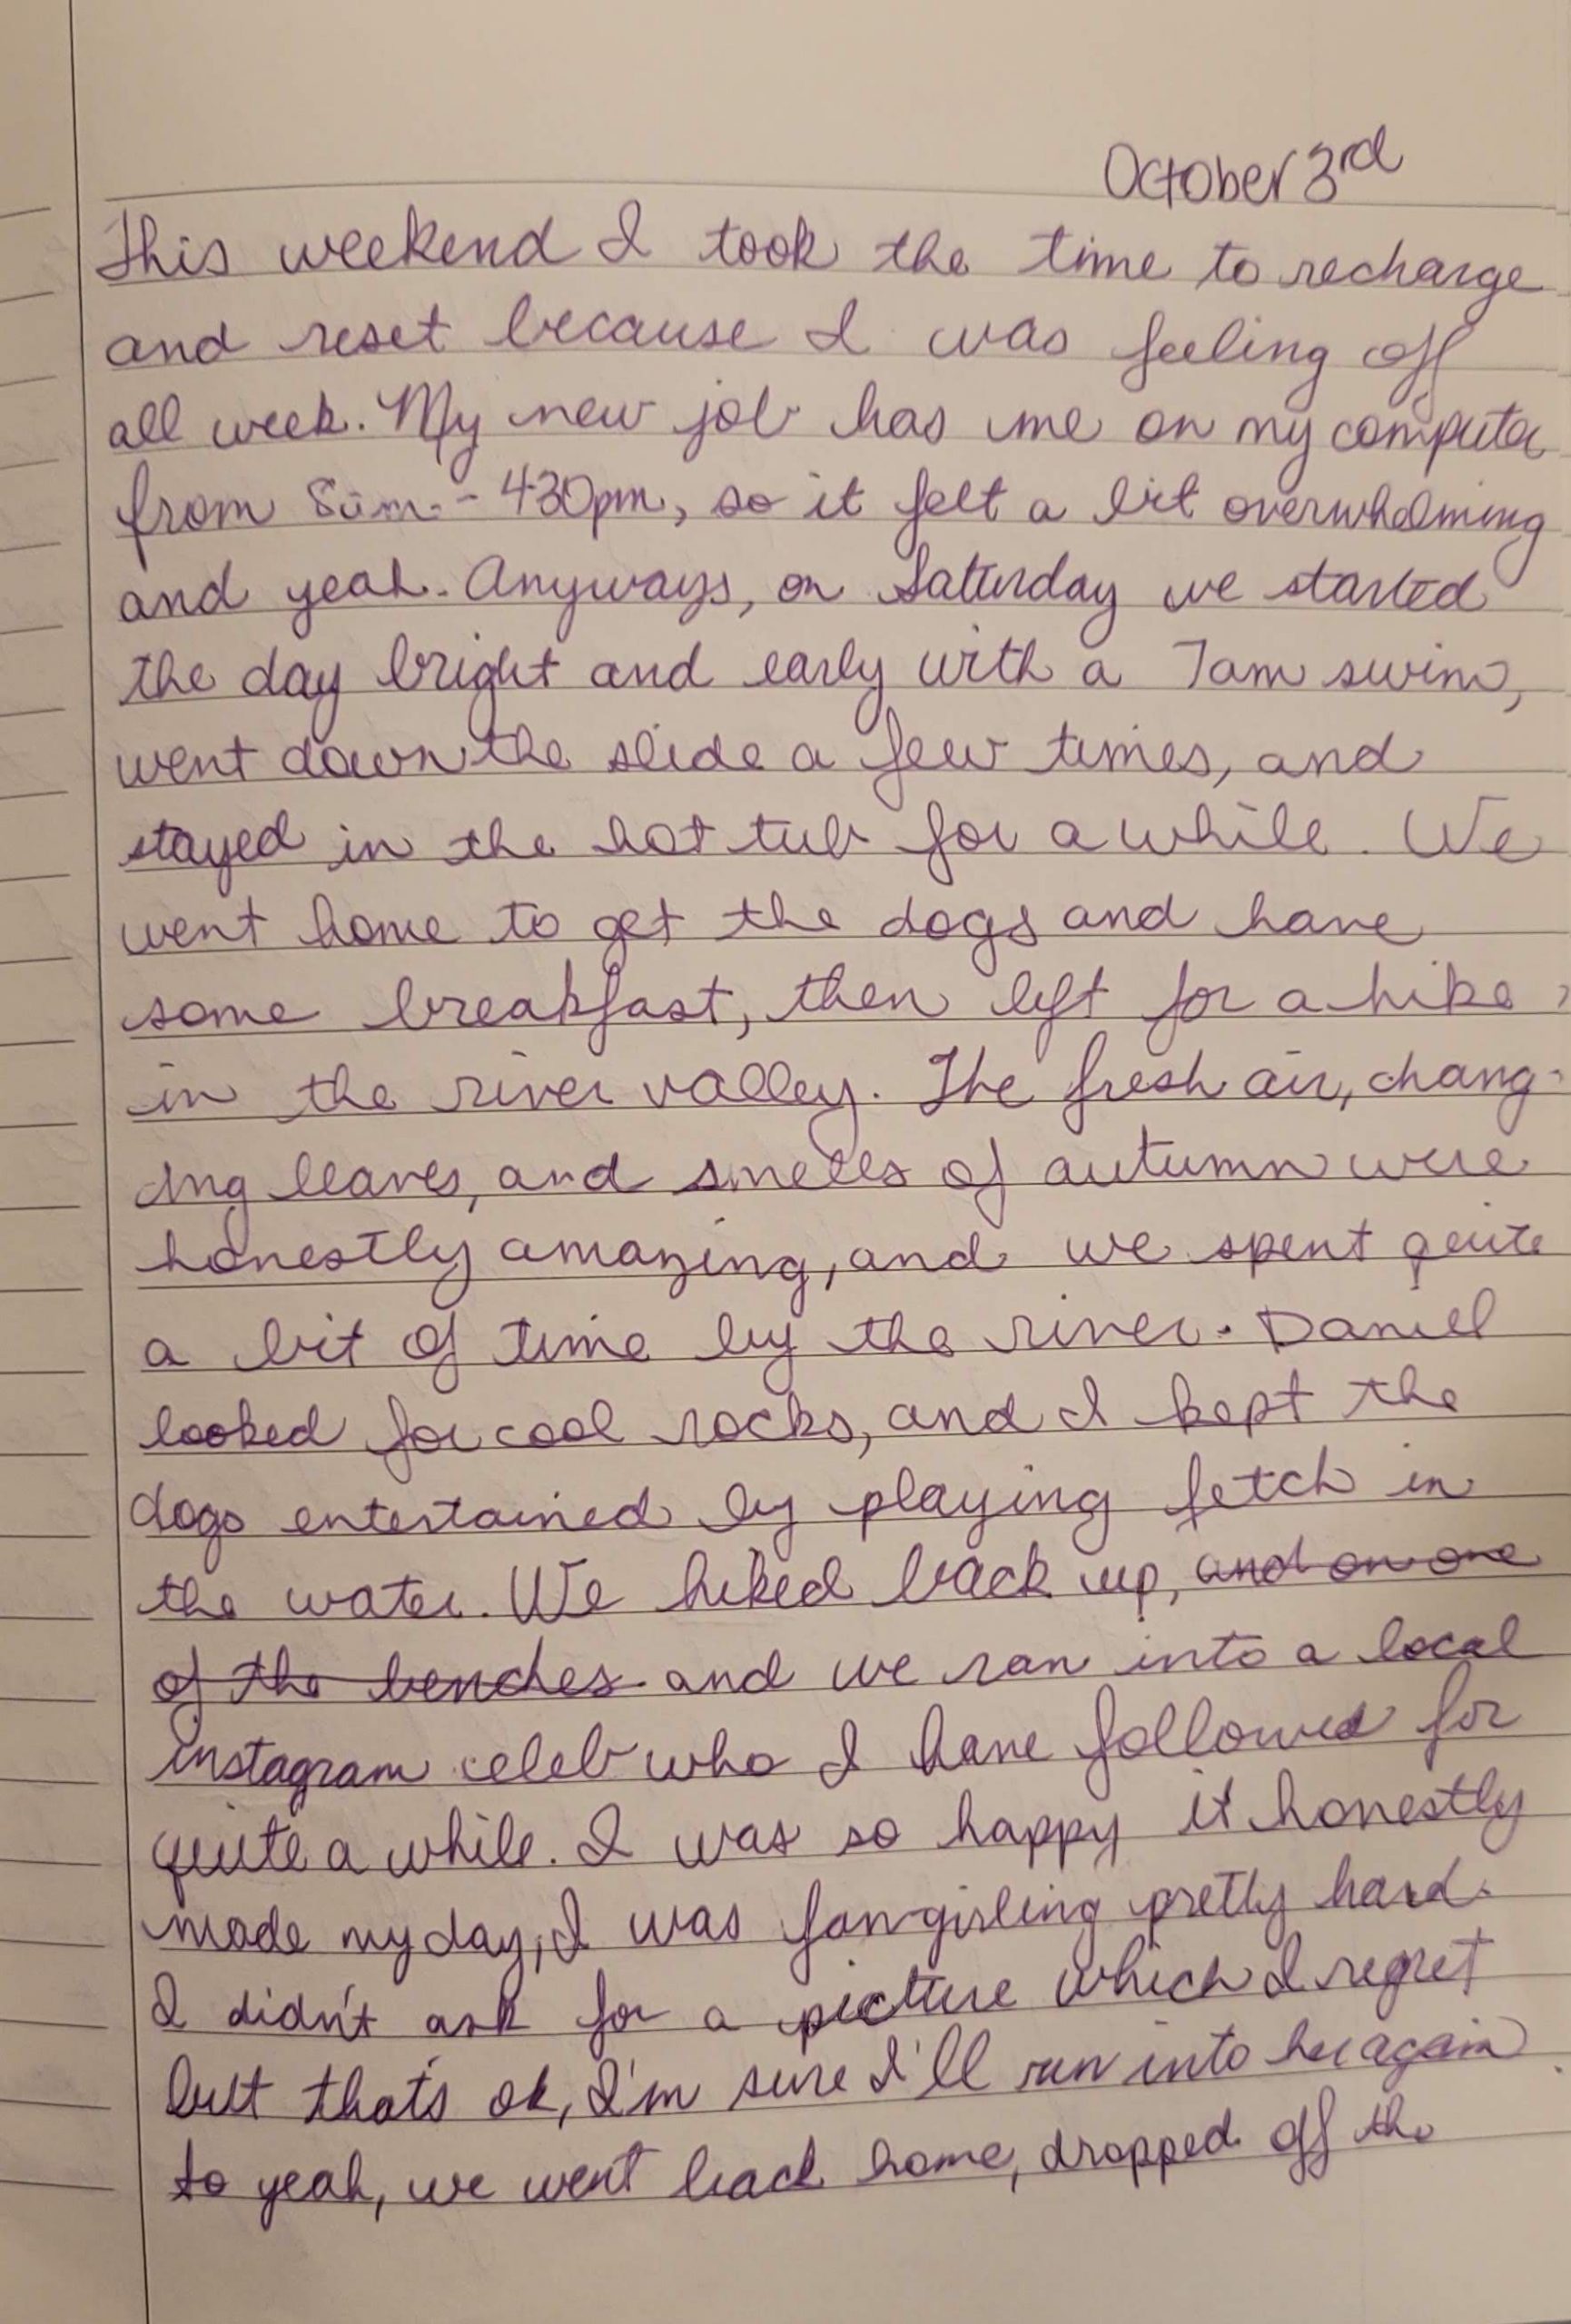 October 3rd
This weekend I took the time to recharge
and reset because I was feeling off
all week. My new job has me on my computer
from 8am - 430pm, so it felt a bit overwhelming
and yeah. Anyways, on Saturday we started
the day bright and early with a 7am swim,
went down the slide a few times, and
stayed in the hot tub for a while. We
went home to get the dogs and have
some breakfast, then left for a hike,
in the river valley. The fresh air, chang-
ing leaves, and smells of autumn were
honestly amazing, and we spent quite
a bit of time by the river. Daniel
looked for cool rocks, and I kept the
dogs entertained by playing fetch in
the water. We hiked back up, and on one
of the benches and we ran into a local
instagram celeb who I have followed for
quite a while. I was so happy it honestly
made my day, I was fangirling pretty hard.
I didn't ask for a picture which I regret
but that's ok, I'm sure I'll run into her again
so yeah, we went back home, dropped off the